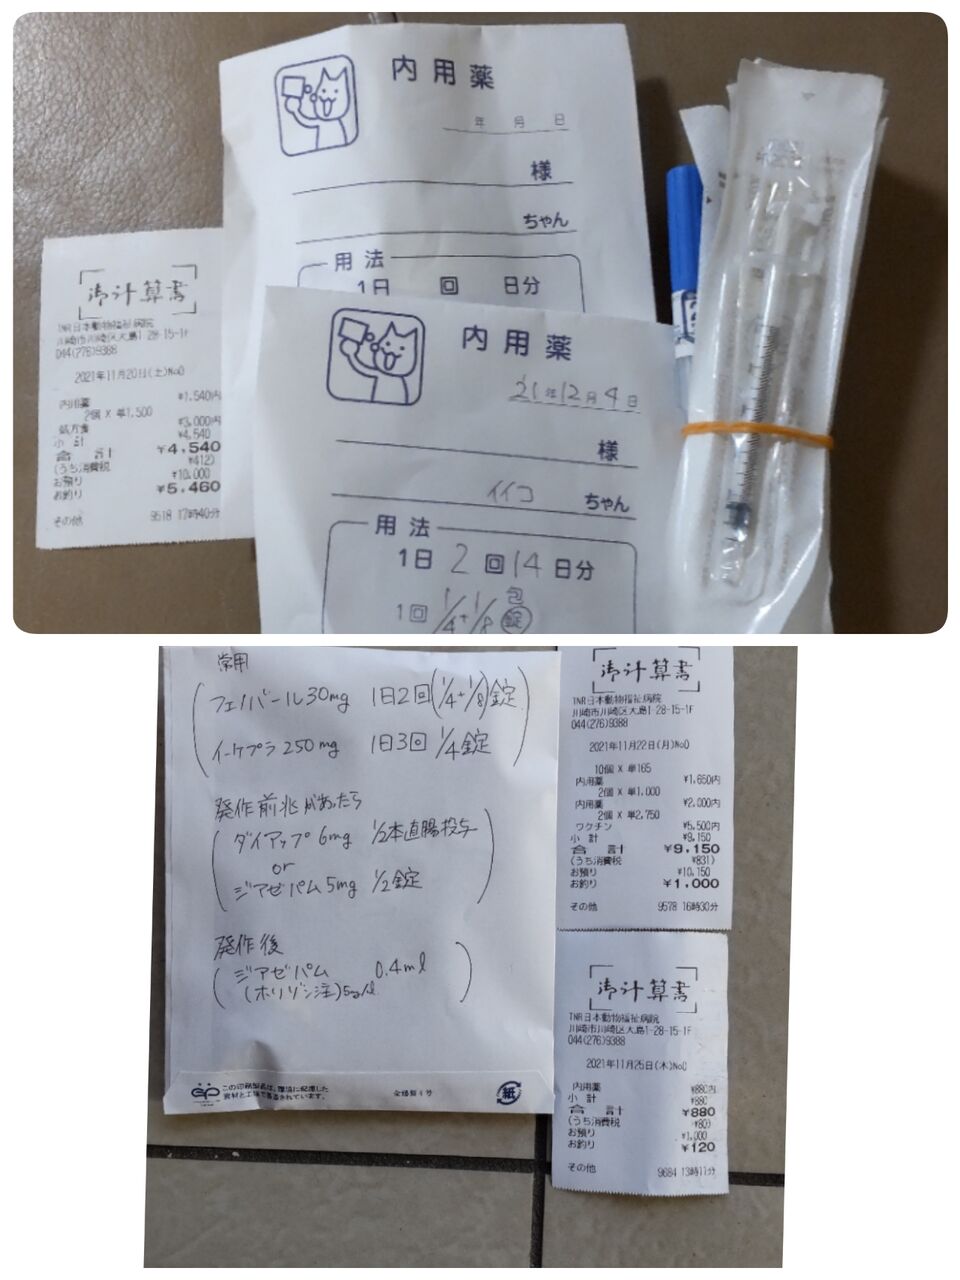 御計算書
TNR日本動物福祉病院
川崎市川崎区大島1-28-15-1F
044(276)9388
2021年11月20日(土)No0
内用薬 ¥1,540内
2個 X 単1,500
処方食 ¥3,000内
小 計 ¥4,540
合 計 ¥4,540
(うち消費税 ¥412)
お預り ¥10,000
お釣り ¥5,460
その他 9518 17時40分
内用薬
年 月 日
様
ちゃん
用法
1日 回 日分
内用薬
21年12月4日
様
イイコ ちゃん
用法
1日 2 回 14 日分
1回 1/4+1/8 包 錠
常用
フェノバール30mg 1日2回(1/4+1/8)錠
イーケプラ250mg 1日3回 1/4錠
発作前兆があったら
ダイアップ6mg 1/2本直腸投与
or
ジアゼパム5mg 1/2錠
発作後
ジアゼパム 0.4ml
(ホリゾン注)
この印刷製品は、環境に配慮した
資材と工場で製造されています。
紙
御計算書
TNR日本動物福祉病院
川崎市川崎区大島1-28-15-1F
044(276)9388
2021年11月22日(月)No0
10個 X 単165
内用薬 ¥1,650内
2個 X 単1,000
内用薬 ¥2,000内
2個 X 単2,750
ワクチン ¥5,500内
小 計 ¥9,150
合 計 ¥9,150
(うち消費税 ¥831)
お預り ¥10,150
お釣り ¥1,000
その他 9578 16時30分
御計算書
TNR日本動物福祉病院
川崎市川崎区大島1-28-15-1F
044(276)9388
2021年11月25日(木)No0
内用薬 ¥880内
小 計 ¥880
合 計 ¥880
(うち消費税 ¥80)
お預り ¥1,000
お釣り ¥120
その他 9684 13時11分